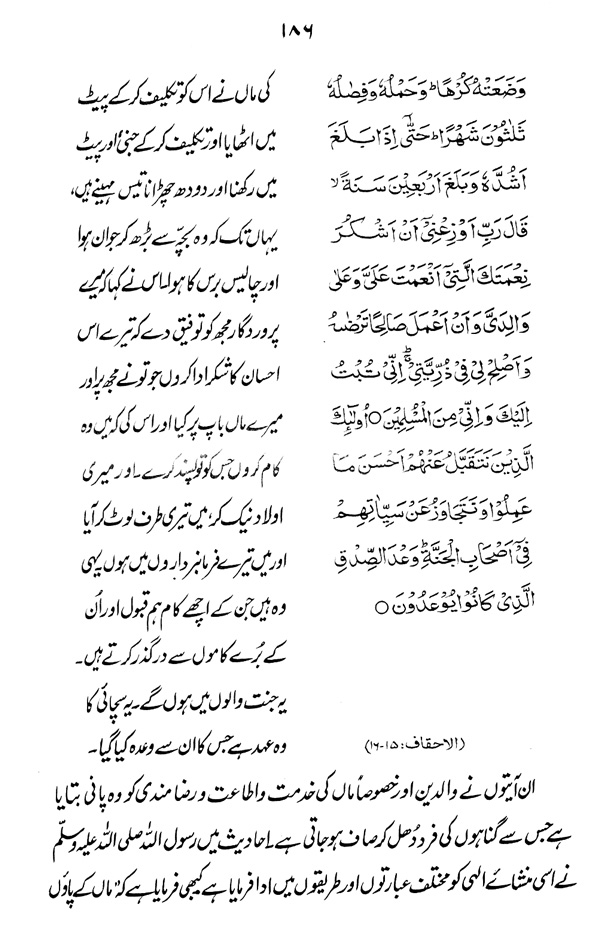 ۱۸۶
وَضَعَتْهُ كُرْهًا ؕ وَحَمْلُهٗ وَفِصٰلُهٗ
ثَلٰثُوْنَ شَهْرًا ؕ حَتّٰٓی اِذَا بَلَغَ
اَشُدَّهٗ وَبَلَغَ اَرْبَعِيْنَ سَنَةً ۙ
قَالَ رَبِّ اَوْزِعْنِیْۤ اَنْ اَشْكُرَ
نِعْمَتَكَ الَّتِیْۤ اَنْعَمْتَ عَلَیَّ وَعَلٰی
وَالِدَیَّ وَاَنْ اَعْمَلَ صَالِحًا تَرْضٰهُ
وَاَصْلِحْ لِیْ فِیْ ذُرِّيَّتِیْ ؕۚ اِنِّیْ تُبْتُ
اِلَيْكَ وَاِنِّیْ مِنَ الْمُسْلِمِيْنَ ○ اُولٰٓئِكَ
الَّذِيْنَ نَتَقَبَّلُ عَنْهُمْ اَحْسَنَ مَا
عَمِلُوْا وَنَتَجَاوَزُ عَنْ سَيِّاٰتِهِمْ
فِیْۤ اَصْحَابِ الْجَنَّةِ ؕ وَعْدَ الصِّدْقِ
الَّذِیْ كَانُوْا يُوْعَدُوْنَ ○
(الاحقاف: ۱۵-۱۶)
کی ماں نے اس کو تکلیف کر کے پیٹ
میں اٹھایا اور تکلیف کر کے جنی اور پیٹ
میں رکھنا اور دودھ چھڑانا تیس مہینے ہیں،
یہاں تک کہ وہ بچہ سے بڑھ کر جوان ہوا
اور چالیس برس کا ہوا۔ اس نے کہا کہ میرے
پروردگار مجھ کو توفیق دے کہ تیرے اس
احسان کا شکر ادا کروں جو تو نے مجھ پر اور
میرے ماں باپ پر کیا اور اس کی کہ میں وہ
کام کروں جس کو تو پسند کرے۔ اور میری
اولاد نیک کر، میں تیری طرف لوٹ کر آیا
اور میں تیرے فرمانبرداروں میں ہوں یہی
وہ ہیں جن کے اچھے کام ہم قبول اور اُن
کے بُرے کاموں سے درگذر کرتے ہیں۔
یہ جنت والوں میں ہوں گے۔ یہ سچائی کا
وہ عہد ہے جس کا ان سے وعدہ کیا گیا۔
ان آیتوں نے والدین اور خصوصاً ماں کی خدمت و اطاعت و رضامندی کو وہ پانی بتایا
ہے جس سے گناہوں کی فرد دُھل کر صاف ہو جاتی ہے۔ احادیث میں رسول اللہ صلی اللہ علیہ وسلم
نے اسی منشائے الٰہی کو مختلف عبارتوں اور طریقوں میں ادا فرمایا ہے کبھی فرمایا ہے کہ "ماں کے پاؤں